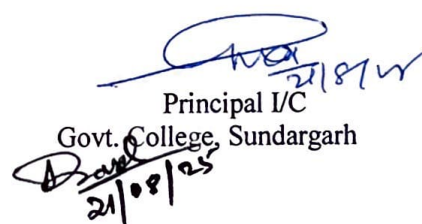 21/8/25
Principal I/C
Govt. College, Sundargarh
21/08/25